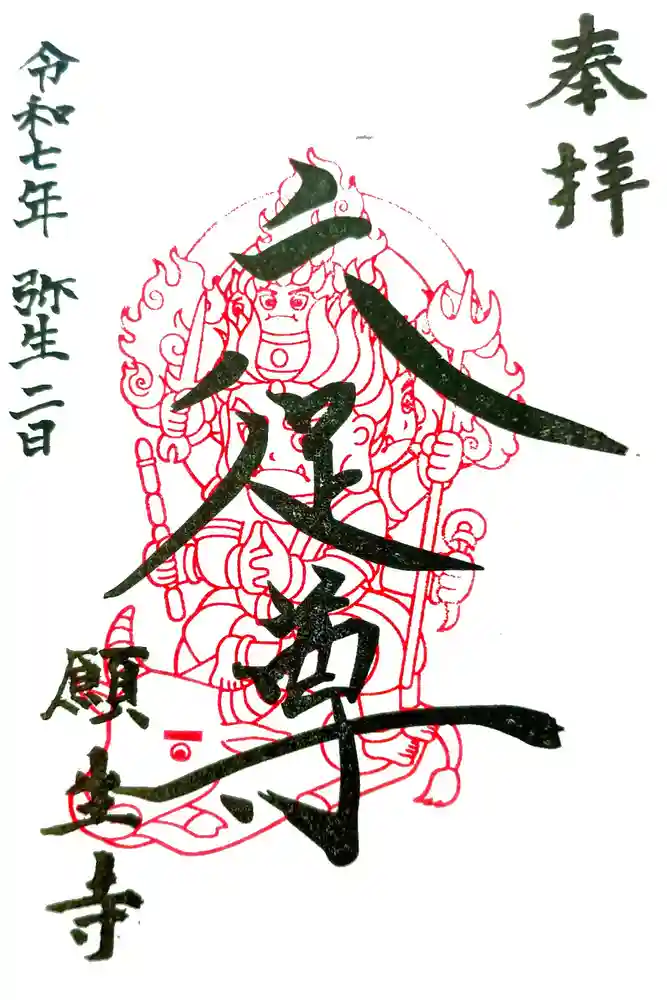 奉拝
六足尊
願生寺
令和七年 弥生二日